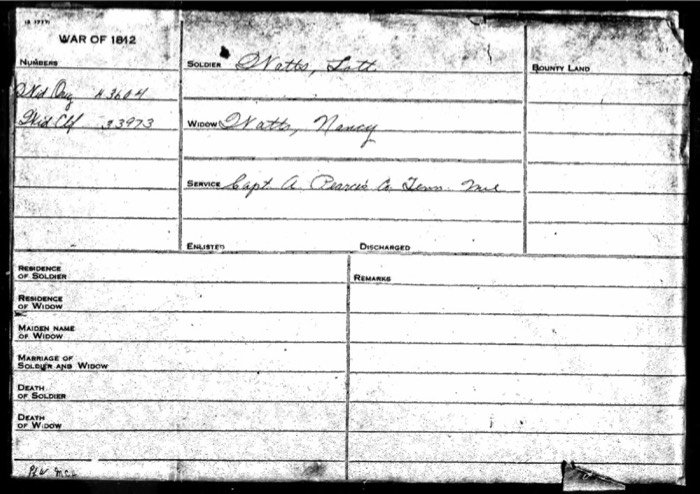 WAR OF 1812
NUMBERS
Wid Orig 43604
Wid Ctf 33973
SOLDIER Watts, Lott
WIDOW Watts, Nancy
SERVICE Capt A. Pearce's Co Tenn. Mil
ENLISTED DISCHARGED
BOUNTY LAND
RESIDENCE
OF SOLDIER
RESIDENCE
OF WIDOW
MAIDEN NAME
OF WIDOW
MARRIAGE OF
SOLDIER AND WIDOW
DEATH
OF SOLDIER
DEATH
OF WIDOW
REMARKS